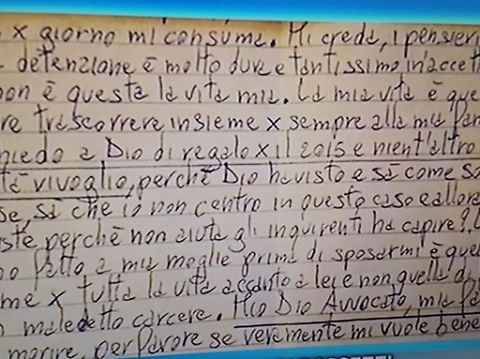 x giorno mi consuma. Mi creda, i pensieri
detenzione è molto dura e tantissimo inaccett
non è questa la vita mia. La mia vita è que
re trascorrere insieme x sempre alla mia fam
hiedo a Dio di regalo x il 2015 e nient'altro
vivo voglio, perché Dio ha visto e sà come so
se, sà che io non centro in questo caso e allora
ste perchè non aiuta gli inquirenti ha capire?!
o fatto a mia moglie prima di sposarmi è quel
me x tutta la vita accanto a lei e non quella di
maledetto carcere. Mio Dio Avvocato, mia fa
morire, per favore se veramente mi vuole bene